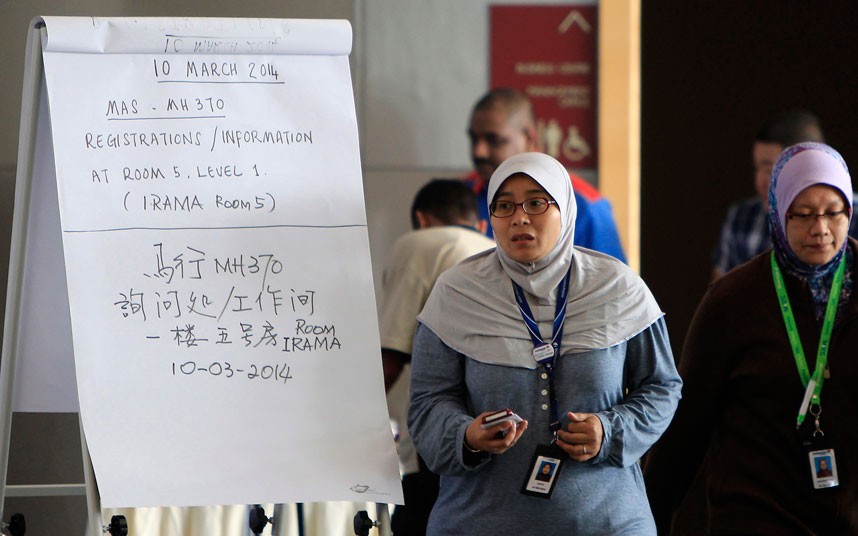 10 MARCH 2014
10 MARCH 2014
MAS - MH370
REGISTRATIONS / INFORMATION
AT ROOM 5, LEVEL 1.
( IRAMA ROOM 5 )
马行 MH370
詢问处/工作间
一楼五号房 ROOM IRAMA
10-03-2014
BUSINESS CENTRE